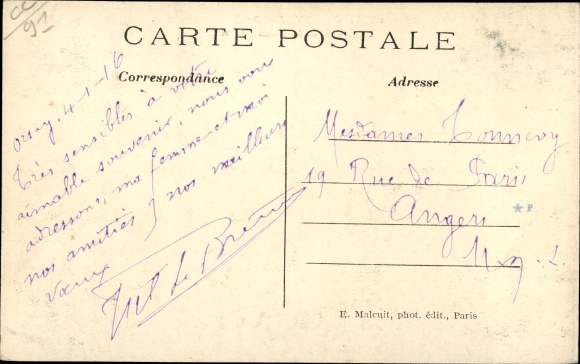 CARTE POSTALE
Correspondance
Adresse
4-1-16
Très sensibles à votre
aimable souvenir, nous vous
adressons, ma femme et moi
nos amitiés & nos meilleurs
vœux
Mesdames
19 Rue de Paris
Angers
M.&.L.
E. Malcuit, phot. édit., Paris